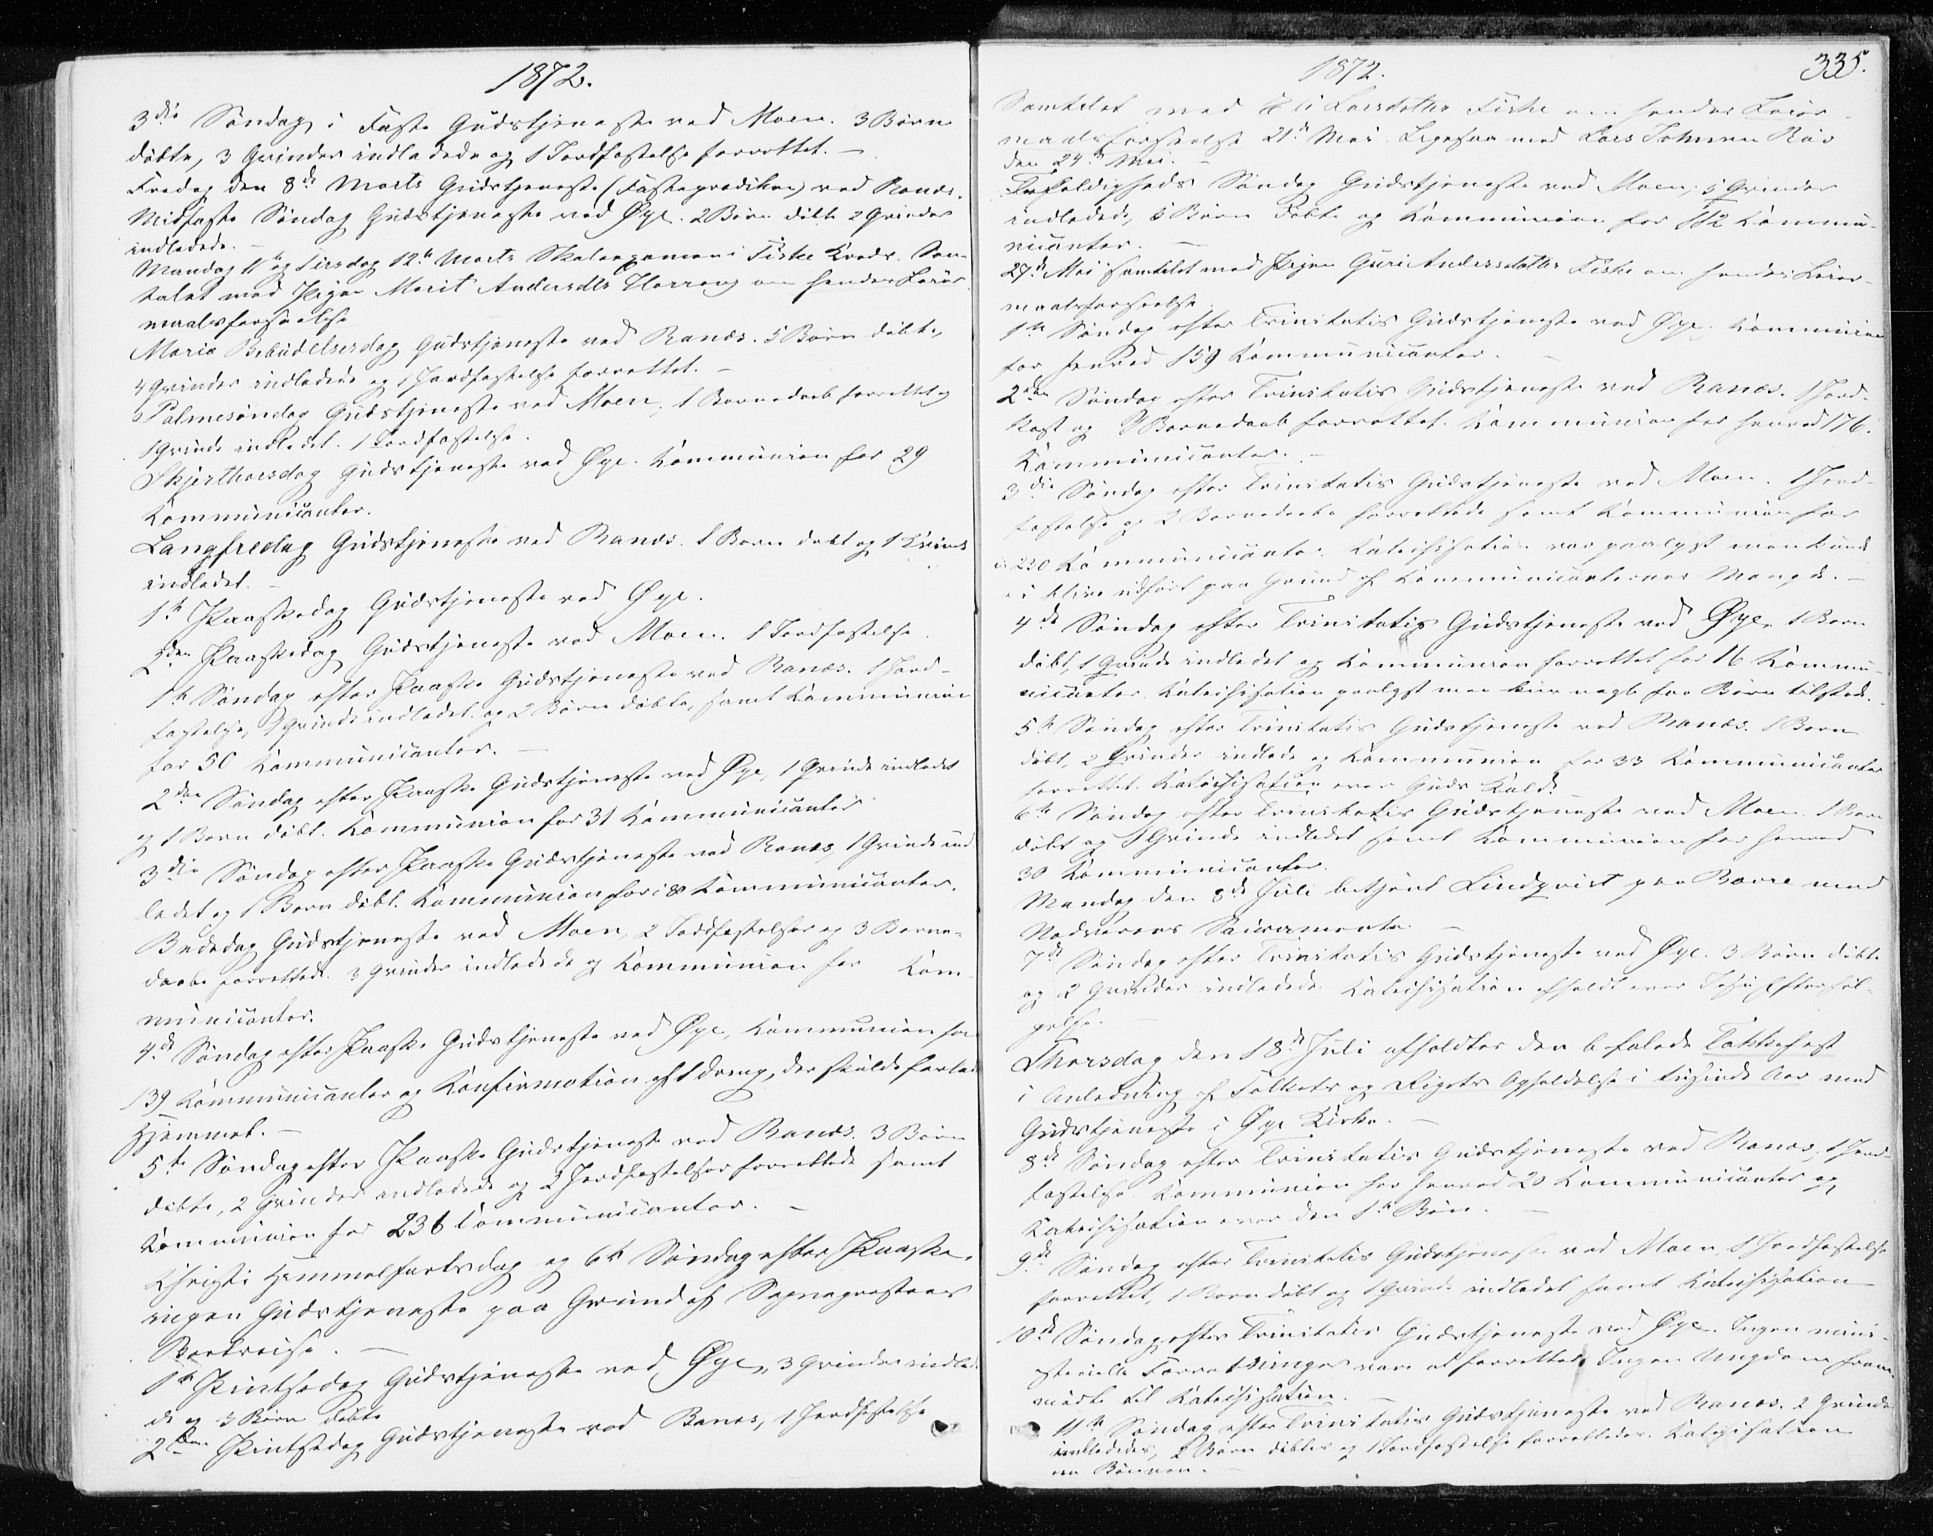 1872.
3die Søndag i Faste Gudstjeneste ved Moen. 3 Børn
døbte, 3 Qvinder indledede og 1 Jordfæstelse forrettet. —
Fredag den 8de Marts Gudstjeneste (Fasteprædiken) ved Ranæs.
Midfaste Søndag Gudstjeneste ved Øye. 2 Børn døbte 2 Qvinder
indledede. —
Mandag 11te og Tirsdag 12te Marts Skoleexamen i Fiske Kreds. Sam-
talet med Pigen Marit Andersdtr Horrong om hendes Leier-
maalsforseelse
Mariæ Bebudelsesdag Gudstjeneste ved Ranæs. 5 Børn døbte,
4 Qvinder indledede og 1 Jordfæstelse forrettet. —
Palmesøndag Gudstjeneste ved Moen, 1 Barnedaab forrettet og
1 Qvinde indledet. 1 Jordfæstelse.
Skjærthorsdag Gudstjeneste ved Øye. Kommunion for 29
Kommunicanter.
Langfredag Gudstjeneste ved Ranæs. 1 Barn døbt og 1 Kvinde
indledet. —
1ste Paaskedag Gudstjeneste ved Øye.
2den Paaskedag Gudstjeneste ved Moen. 1 Jordfæstelse.
1ste Søndag efter Paaske Gudstjeneste ved Ranæs. 1 Jord-
fæstelse, 1 Qvinde indledet og 2 Børn døbte, samt Kommunion
for 50 Kommunicanter. —
2den Søndag efter Paaske Gudstjeneste ved Øye, 1 Qvinde indledet
og 1 Barn døbt. Kommunion for 31 Kommunicanter
3die Søndag efter Paaske Gudstjeneste ved Ranæs, 1 Qvinde ind-
ledet og 1 Barn døbt. Kommunion for 80 Kommunicanter.
Bededag Gudstjeneste ved Moen, 2 Jordfæstelser og 3 Barne-
daabe forrettede. 3 Qvinder indledede og Kommunion for Kom-
municanter.
4de Søndag efter Paaske Gudstjeneste ved Øye, Kommunion for
139 Kommunicanter og Konfirmation af 1 Dreng, der skulde forlade
Hjemmet. —
5te Søndag efter Paaske Gudstjeneste ved Ranæs. 3 Børn
døbte, 2 Qvinder indledede og 2 Jordfæstelser forrettede samt
Kommunion for 236 Kommunicanter. —
Christi Himmelfartsdag og 6te Søndag efter Paaske
ingen Gudstjeneste paa Grund af Sognepræstens
Bortreise. —
1ste Pintsedag Gudstjeneste ved Øye, 3 Qvinder indlede-
de og 3 Børn døbte
2den Pintsedag Gudstjeneste ved Ranæs, 1 Jordfæstelse
1872.
335.
Samtalet med Larsdatter Fiske om hendes Leier-
maalsforseelse 21de Mai. Ligesaa med Lars Johnsen Røs
den 24de Mai. —
Trefoldigheds Søndag Gudstjeneste ved Moen, 5 Qvinder
indledede, 5 Børn døbte og Kommunion for 112 Kommu-
nicanter. —
27de Mai samtalet med Pigen Guri Andersdatter Fiske om hendes Leier-
maalsforseelse.
1ste Søndag efter Trinitatis Gudstjeneste ved Øye. Kommunion
for henved 159 Kommunicanter. —
2den Søndag efter Trinitatis Gudstjeneste ved Ranæs. 1 Jord-
kast og 3 Barnedaab forrettet. Kommunion for henved 176
Kommunicanter. —
3die Søndag efter Trinitatis Gudstjeneste ved Moen. 1 Jord-
fæstelse og 2 Barnedaabe forrettede samt Kommunion for
220 Kommunicanter. Katechisation var paalyst men kunde
ei blive udført paa Grund af Kommunicanternes Mængde. —
4de Søndag efter Trinitatis Gudstjeneste ved Øye, 1 Barn
døbt, 1 Qvinde indledet og Kommunion forrettet for 16 Kommu-
nicanter. Katechisation paalyst men kun nogle faa Børn tilstede.
5te Søndag efter Trinitatis Gudstjeneste ved Ranæs. 1 Barn
døbt, 2 Qvinder indlede og Kommunion for 33 Kommunicanter
forrettet. Katechisation over Guds Kald.
6te Søndag efter Trinitatis Gudstjeneste ved Moen. 1 Barn
døbt og 1 Qvinde indledet samt Kommunion for henved
30 Kommunicanter.
Mandag den 8de Juli betjent Lindqvist paa Bævre med
Nadverens Sacramente. —
7de Søndag efter Trinitatis Gudstjeneste ved Øye. 3 Børn døbte
og 2 Qvinder indledede. Katechisation afholdt over Jesu Efterføl-
gelse. —
Thorsdag den 18de Juli afholdtes den befalede Takkefest
i Anledning af Folkets og Rigets Opholdelse i tusinde Aar med
Gudstjeneste i Øye Kirke. —
8de Søndag efter Trinitatis Gudstjeneste ved Ranæs, 1 Jord-
fæstelse. Kommunion for henved 20 Kommunicanter og
Katechisation over den 1ste Bøn. —
9de Søndag efter Trinitatis Gudstjeneste ved Moen, 1 Jordfæstelse
forrettet, 1 Barn døbt og 1 Qvinde indledet samt Katechisation
10de Søndag efter Trinitatis Gudstjeneste ved Øye. Ingen mini-
sterielle Forretninger vare at forrette. Ingen Ungdom frem-
mødte til Katechisation. —
11te Søndag efter Trinitatis Gudstjeneste ved Ranæs. 2 Qvinder
indlededes, 2 Børn døbtes og 1 Jordfæstelse forrettedes. Katechisation
om Bønnen. —